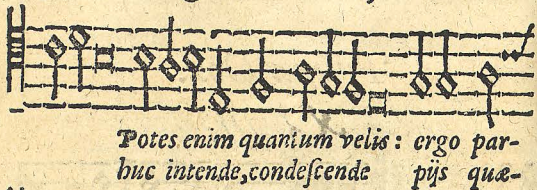 Potes enim quantum velis : ergo par-
huc intende, condeſcende pijs quæ-